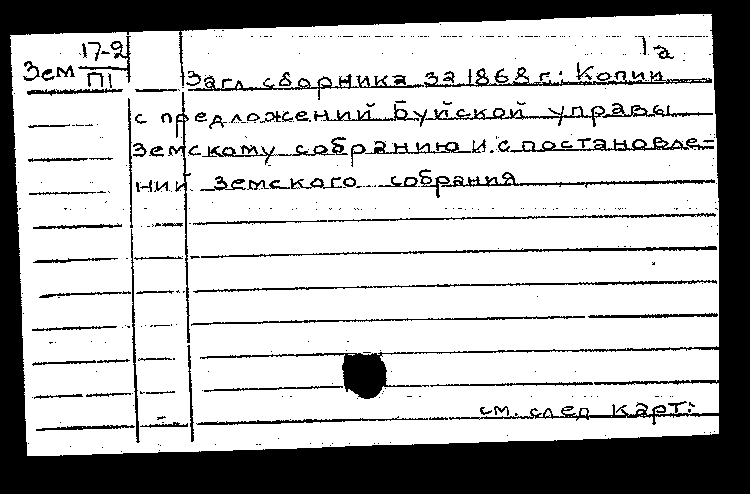 1а
Зем 17-2
П1
Загл. сборника за 1868 г.: Копии
с предложений Буйской управы
земскому собранию и с постановле=
ний земского собрания
см. след карт.